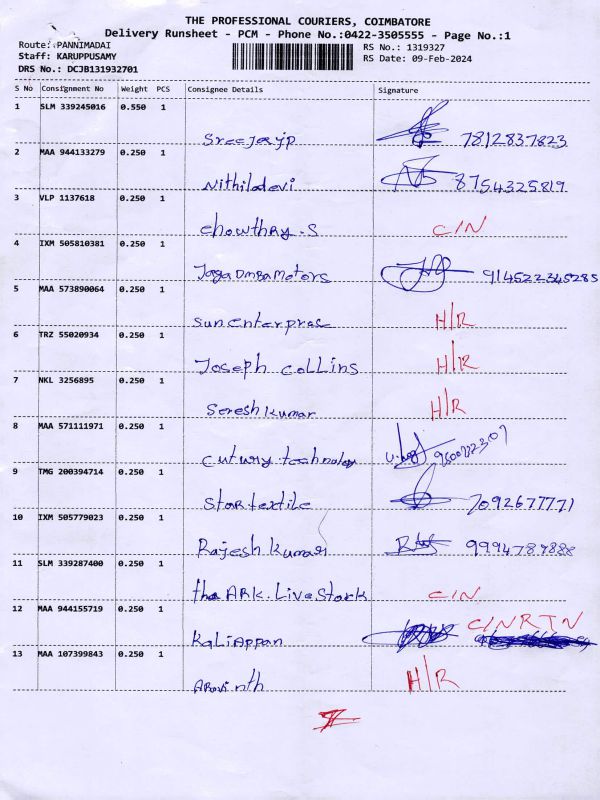 THE PROFESSIONAL COURIERS, COIMBATORE
Delivery Runsheet - PCM - Phone No.:0422-3505555 - Page No.:1
Route: PANNIMADAI RS No.: 1319327
Staff: KARUPPUSAMY RS Date: 09-Feb-2024
DRS No.: DCJB131932701
S No Consignment No Weight PCS Consignee Details Signature
1 SLM 339245016 0.550 1
Sreejayjp 7812837823
2 MAA 944133279 0.250 1
Nithiladevi 8754325819
3 VLP 1137618 0.250 1
chowthry.S C/N
4 IXM 505810381 0.250 1
JagaDmba Motors 914522345285
5 MAA 573890064 0.250 1
sun enterprase H/R
6 TRZ 55020934 0.250 1
Joseph coLLins H/R
7 NKL 3256895 0.250 1
Seresh kumar H/R
8 MAA 571111971 0.250 1
cutury technolay
9 TMG 200394714 0.250 1
Star textile 7092677771
10 IXM 505779023 0.250 1
Rajesh kumar 9994789888
11 SLM 339287400 0.250 1
tha ARK.LiveStork C/N
12 MAA 944155719 0.250 1
KaLiAppan C/NRTN
13 MAA 107399843 0.250 1
Aravinth H/R